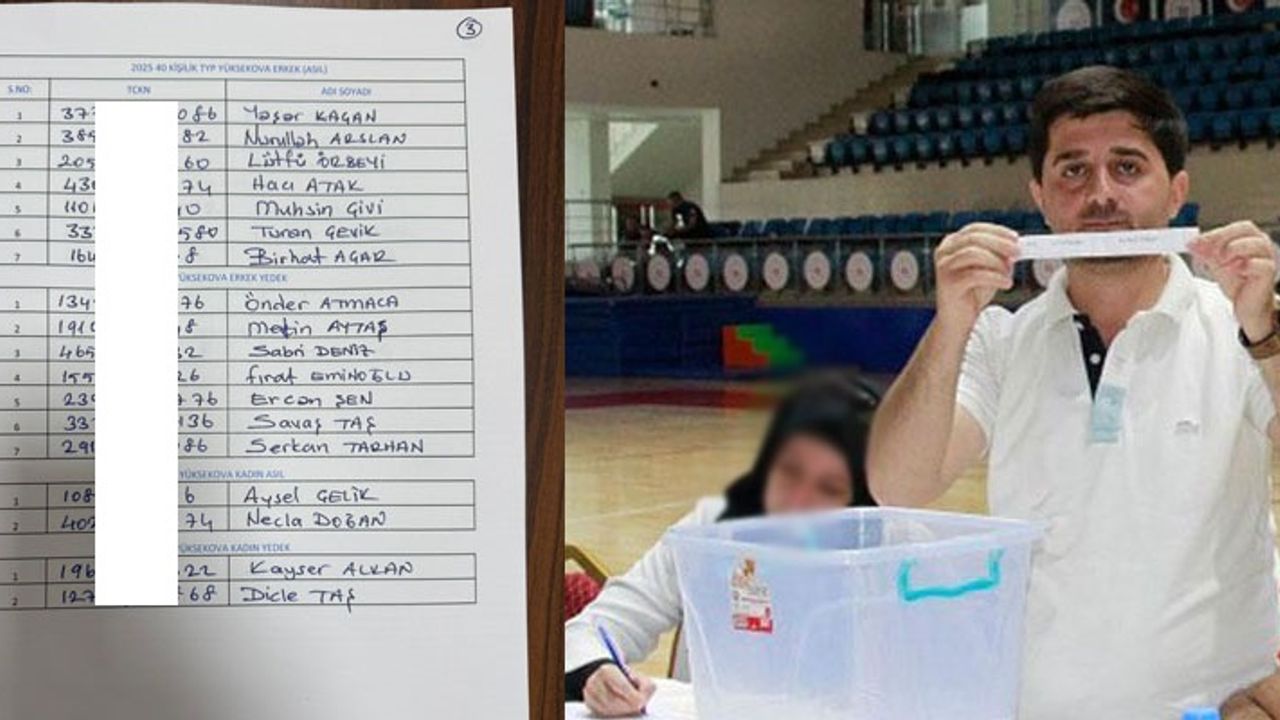 3
2025 40 KİŞİLİK TYP YÜKSEKOVA ERKEK (ASIL)
S.NO: TCKN ADI SOYADI
1 37 086 Yaşar KAÇAN
2 384 82 Nurullah ARSLAN
3 205 60 Lütfü ÖRBEYİ
4 430 74 Hacı ATAK
5 1101 0 Muhsin GİVİ
6 33 580 Turan ÇEVİK
7 164 8 Birhat AÇAR
YÜKSEKOVA ERKEK YEDEK
1 134 76 Önder ATMACA
2 1910 8 Metin AYTAŞ
3 465 2 Sabri DENİZ
4 155 26 Fırat EMİNOĞLU
5 239 76 Ercan ŞEN
6 33 136 Savaş TAŞ
7 291 86 Serkan TARHAN
YÜKSEKOVA KADIN ASIL
1 108 6 Aysel ÇELİK
2 402 74 Necla DOĞAN
YÜKSEKOVA KADIN YEDEK
1 196 22 Kayser ALKAN
2 127 68 Dicle TAŞ